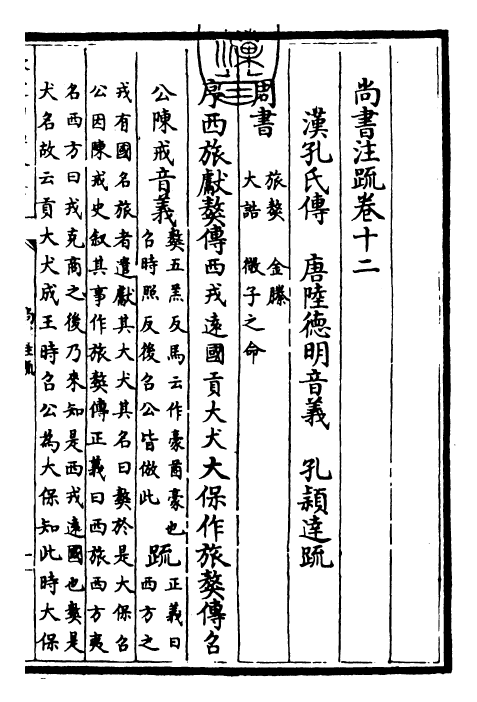 尚書注疏卷十二
漢孔氏傳　唐陸德明音義　孔穎達疏
周書
旅獒　金縢
大誥　微子之命
序西旅獻獒傳西戎遠國貢大犬大保作旅獒傳召
公陳戒音義
獒五羔反馬云作豪酋豪也
召時照反後召公皆倣此
疏
正義曰
西方之
戎有國名旅者遣獻其大犬其名曰獒於是大保召
公因陳戒史叙其事作旅獒傳正義曰西旅西方夷
名西方曰戎克商之後乃來知是西戎遠國也獒是
犬名故云貢大犬成王時召公為大保知此時大保